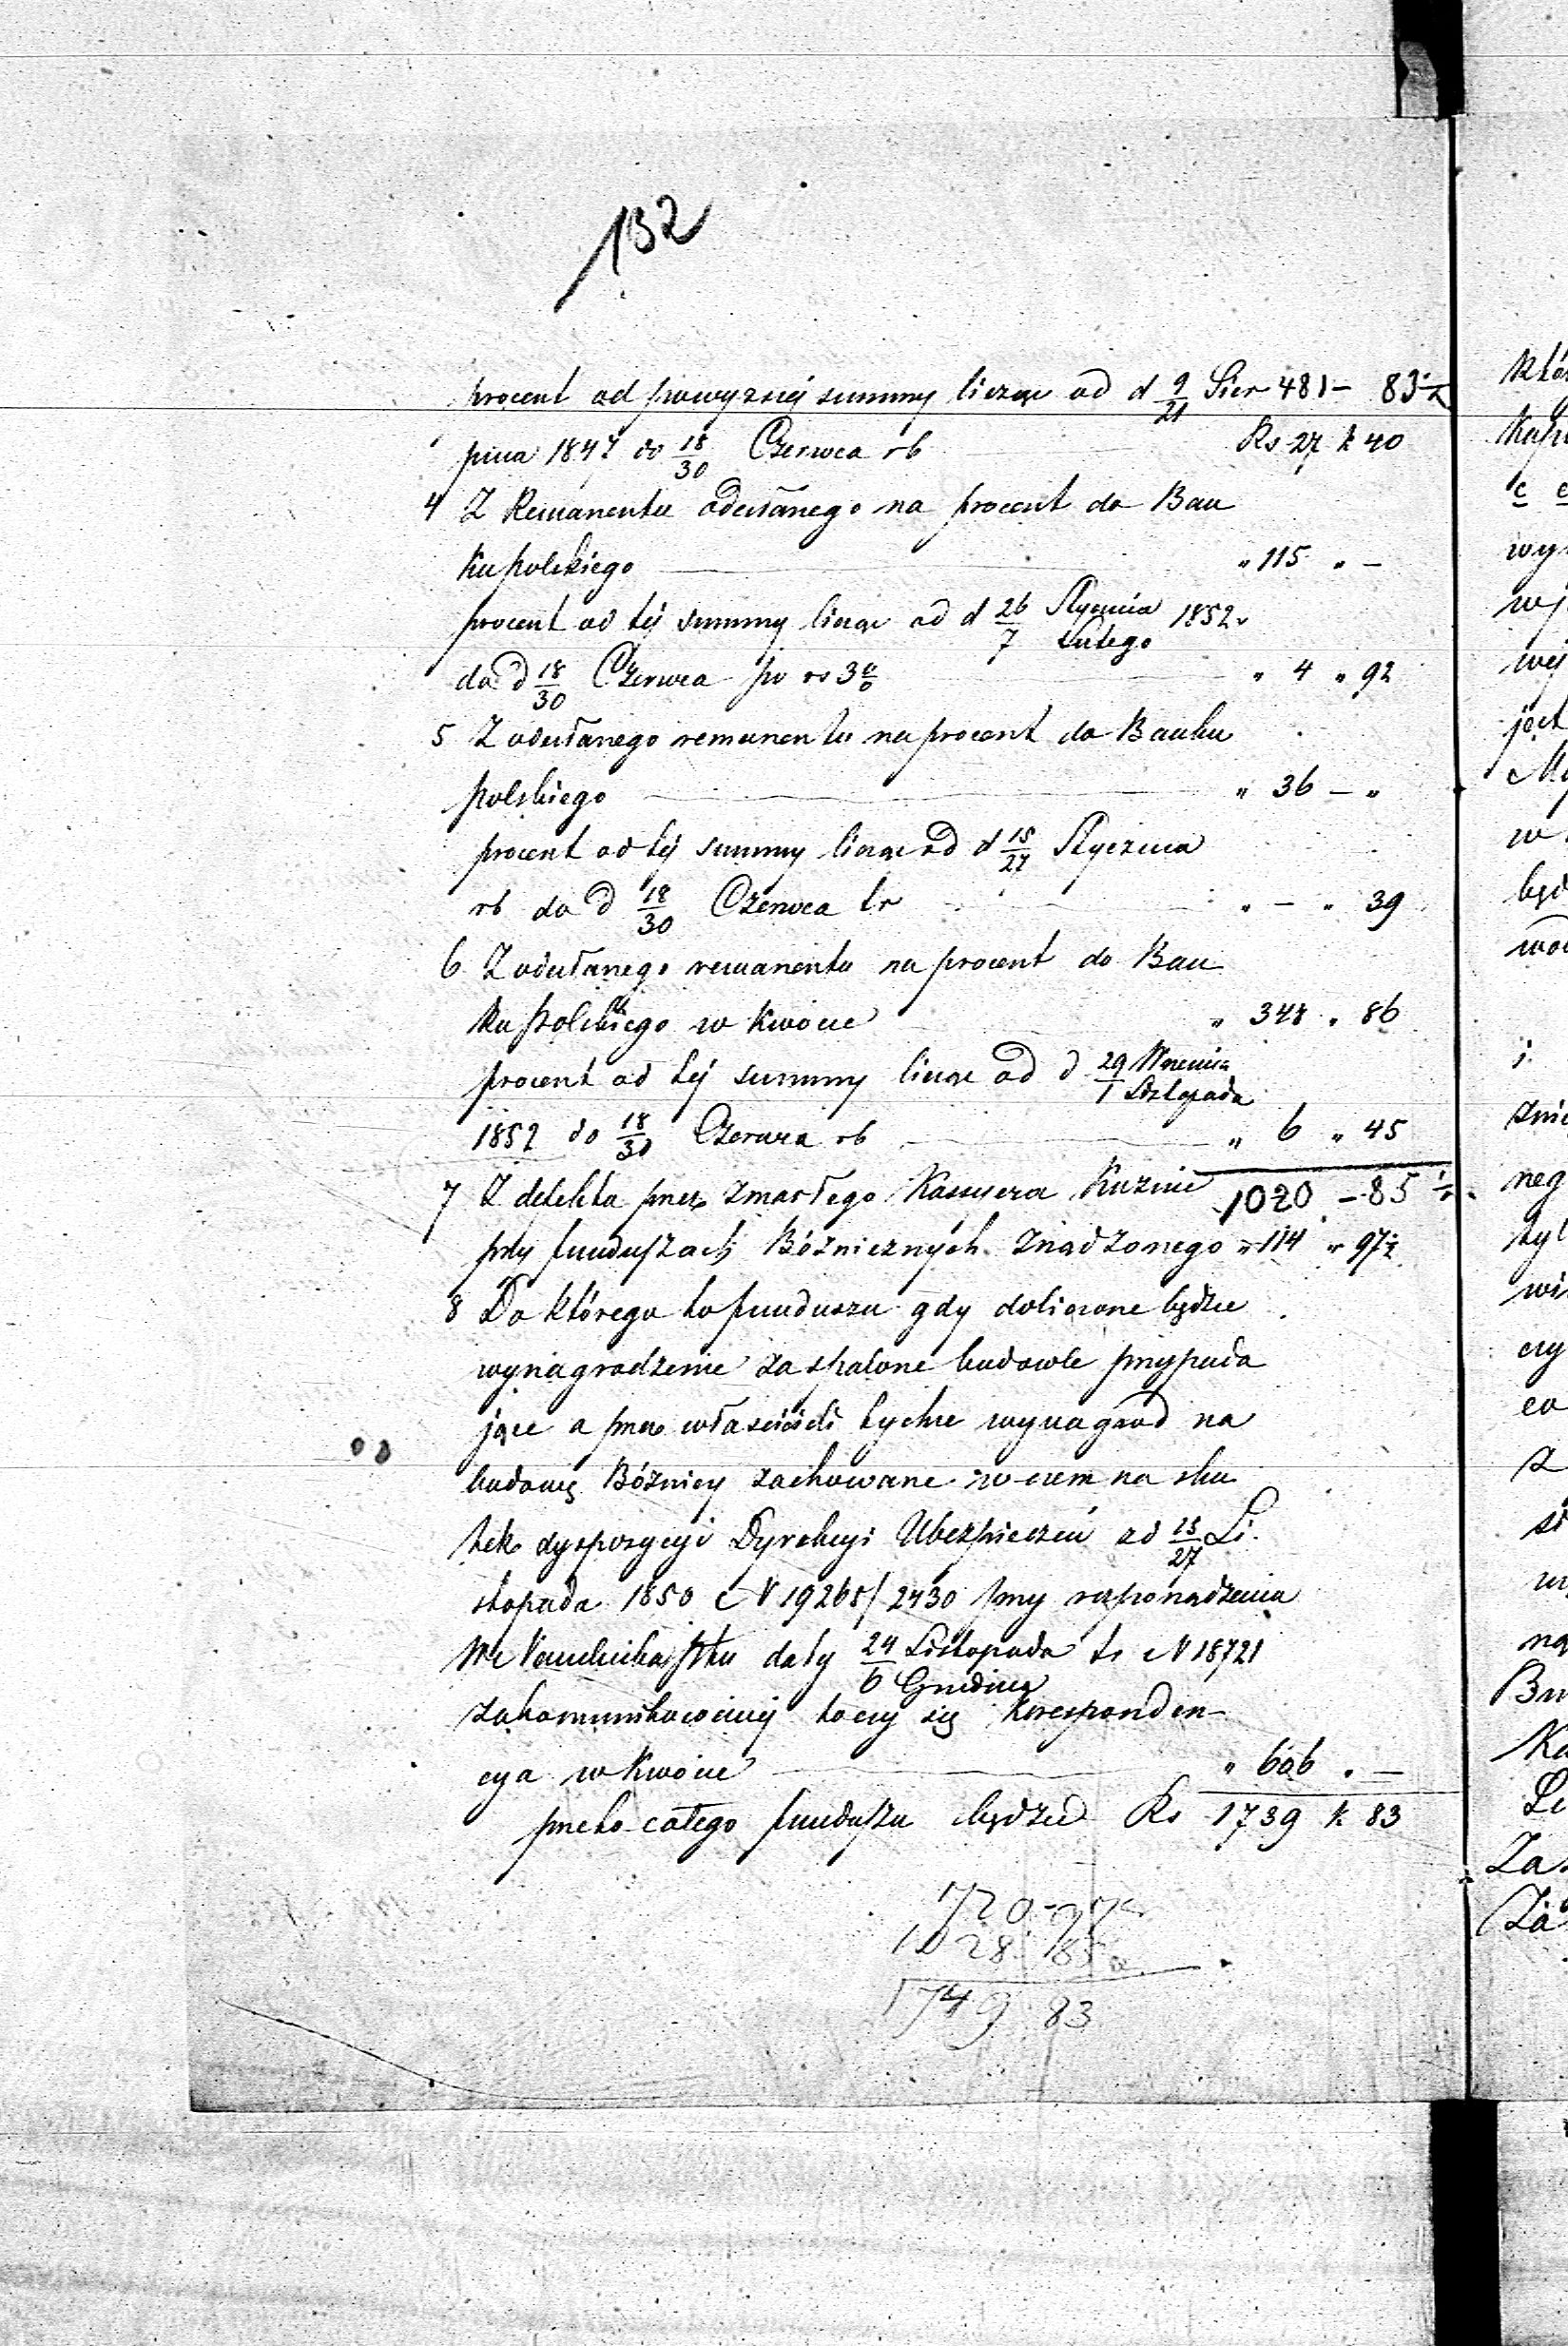 132
procent od powyzszéj summy licząc od d 9/21 Sier 481 - 83 1/2
pnia 1847 do 18/30 Czerwca rb Rs 27 k 40
4 Z Remanentu odesłanego na procent do Ban
ku polskiego " 115 " -
procent od téj summy licząc od d 26/7 Stycznia/Lutego 1852 r
do d 18/30 Czerwca po rs 3 % " 4 " 92
5 Z odesłanego remanentu na procent do Banku
polskiego " 36 - "
procent od téj summy licząc od d 15/27 Stycznia
rb do d 18/30 Czerwca tr " - " 39
6 Z odesłanego remanentu na procent do Ban
ku Polskiego w kwocie " 348 " 86
procent od téj summy licząc od d 29/1 Listopada
1852 do 18/30 Czerwca rb " 6 " 45
7 Z defektu przez zmarłego Kassyera 1020 - 85 1/2
przy funduszach Bóżnicznych Znadzonego " 114 " 97 1/2
8 Do którego to funduszu gdy doliczone będzie
wynagrodzenie za spalone budowle przypada
jące a przez właścicieli tychże wynagrod na
budowę Bóżnicy zachowane w czem na sku
tek dyspozycyi Dyrekcyi Ubezpieczeń z d 15/27 Li
stopada 1850 N 19265/2430 przy rozporządzeniu
daty 24/6 Listopada/Grudnia tr N 18721
zakomunikowanéj toczy się korresponden-
cya w kwocie " 606 " -
przeto całego funduszu będzie Rs 1739 k 83
720 - 97
1028 85
1749 83